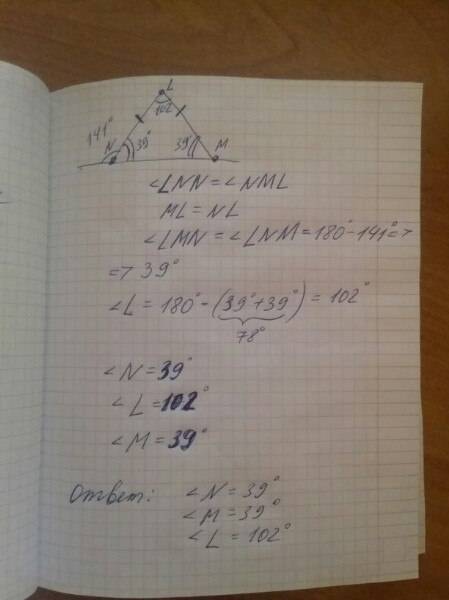 L
102
141° N 39° 39° M
∠LNN = ∠NML
ML = NL
∠LMN = ∠LNM = 180° - 141° =>
=> 39°
∠L = 180° - (39° + 39°) = 102°
78°
∠N = 39°
∠L = 102°
∠M = 39°
Ответ: ∠N = 39°
∠M = 39°
∠L = 102°